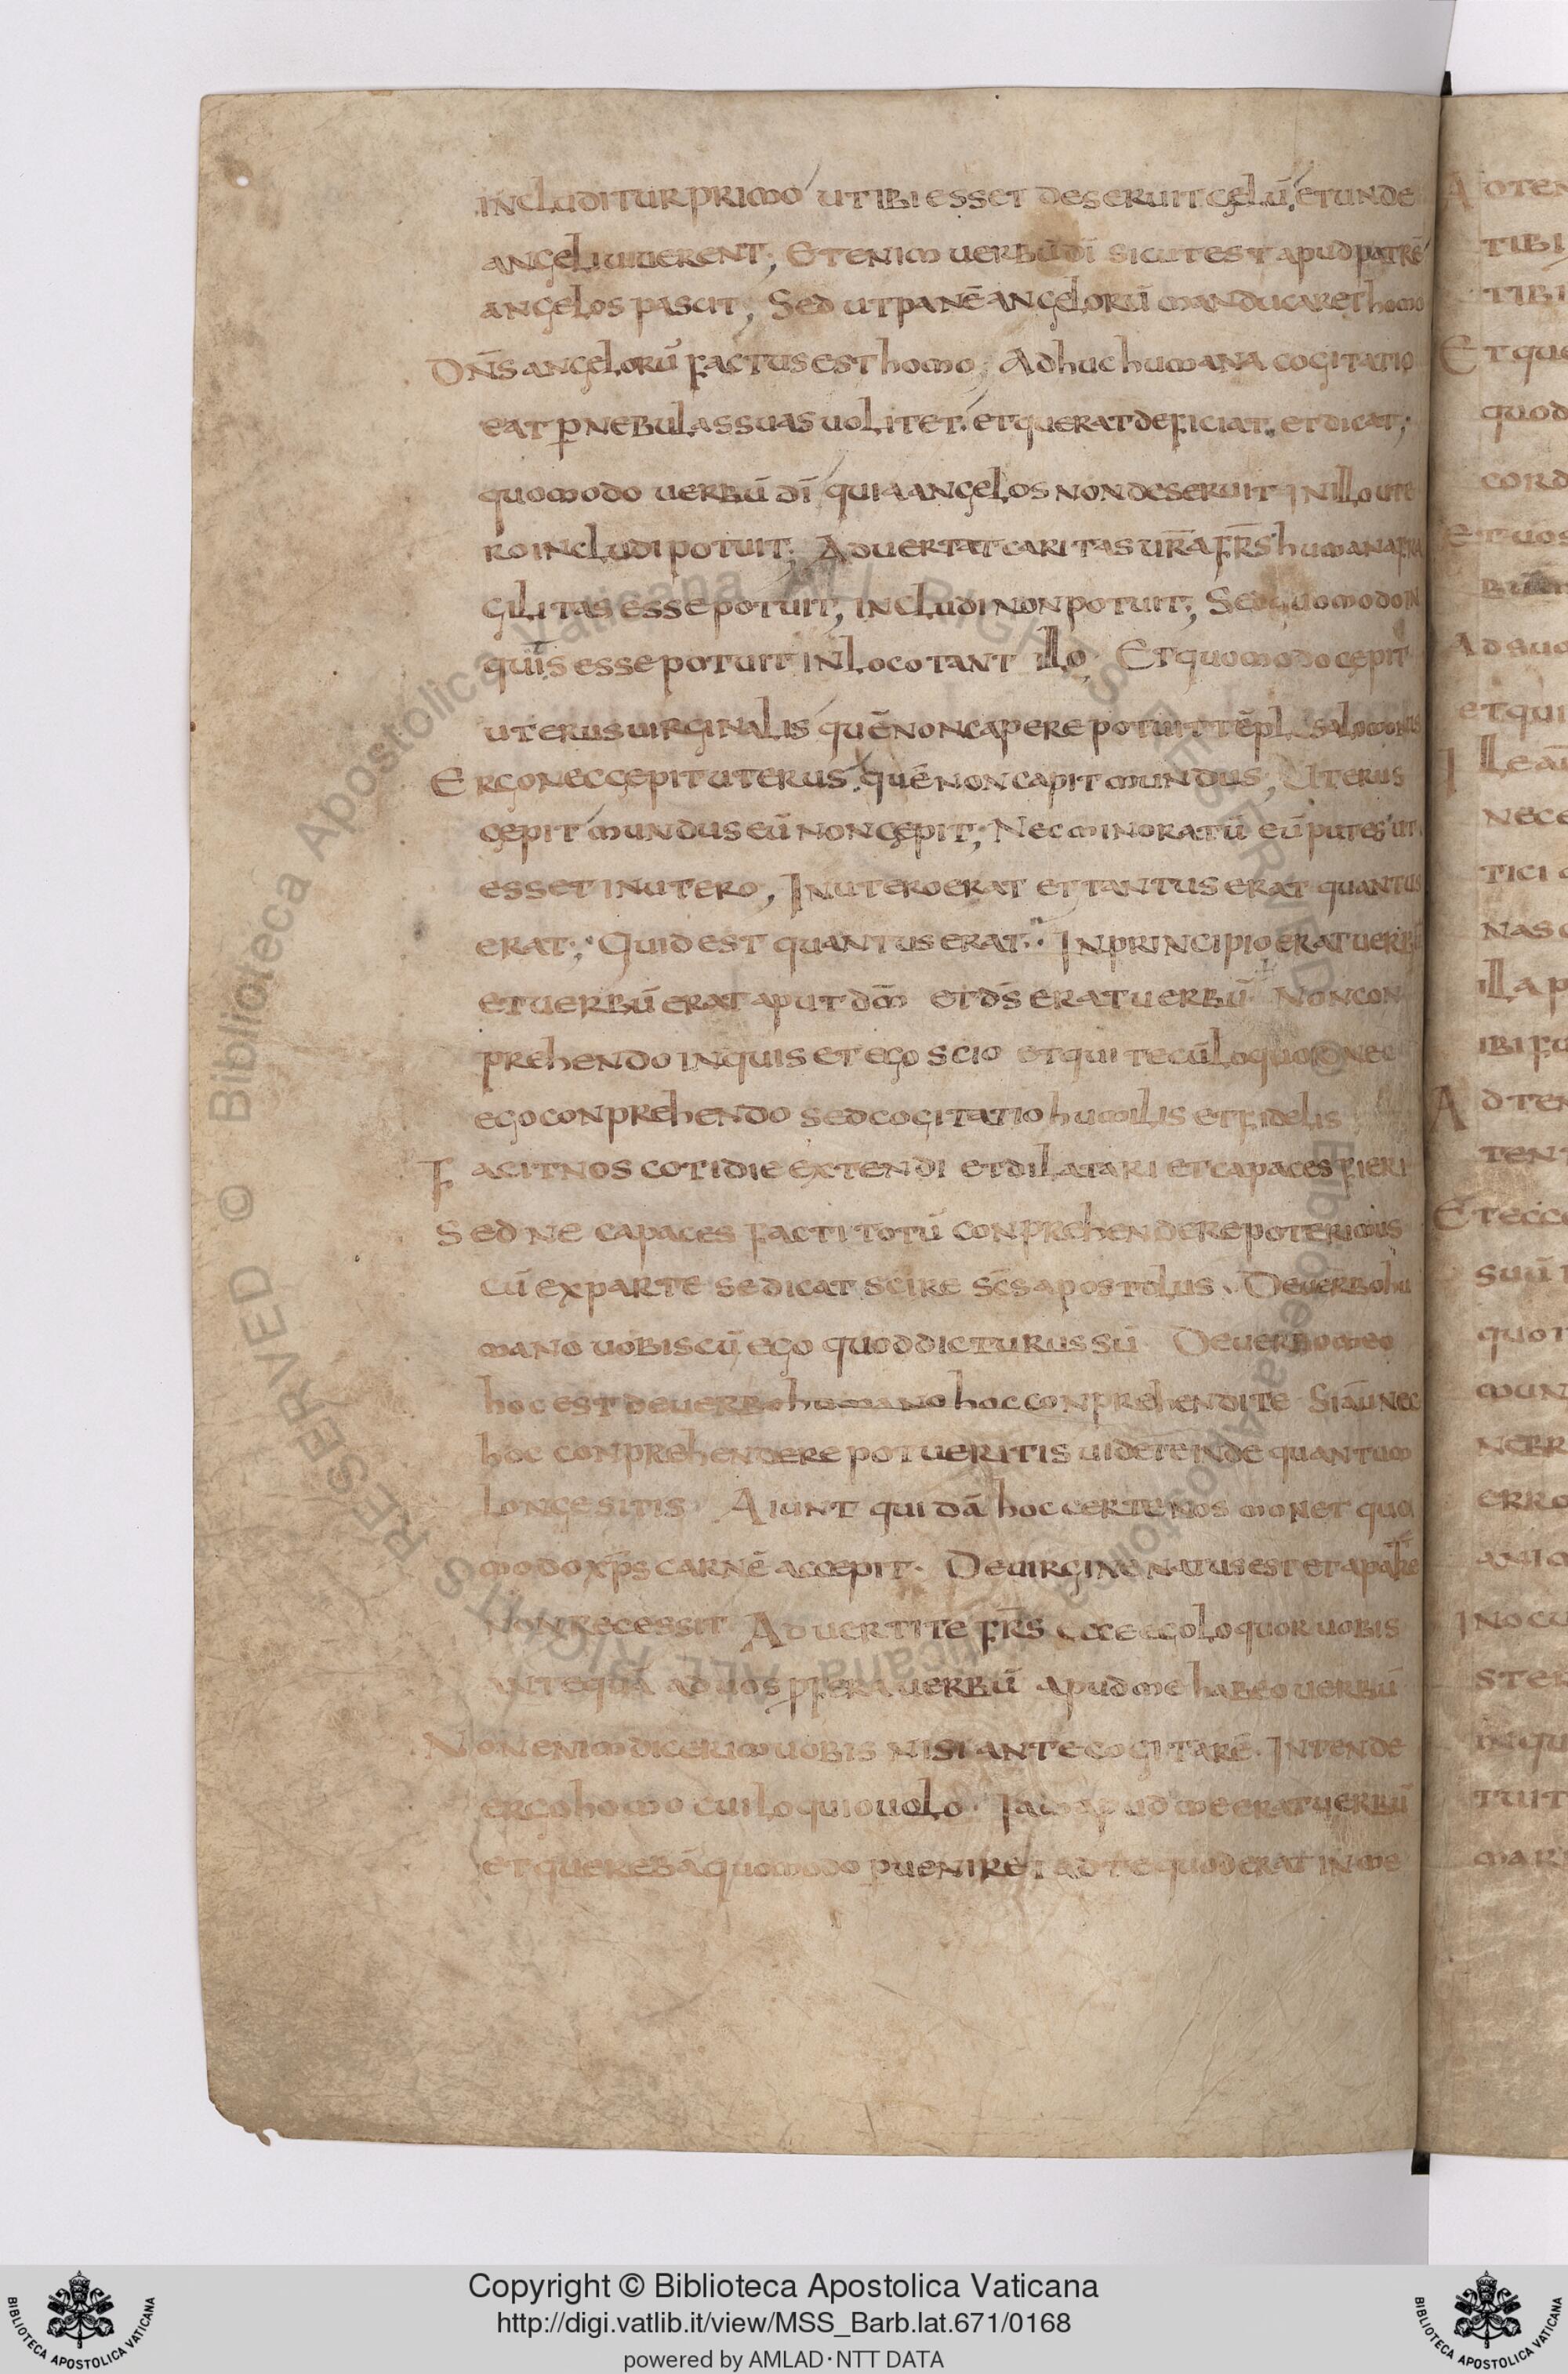 includitur primo ut ibi esset deseruit cęlū et unde
angeli uiuerent; Etenim uerbū dī sicut est apud patrē
angelos pascit; Sed ut panē angelorū manducaret homo
Dn̄s angelorū factus est homo; Adhuc humana cogitatio
eat ꝑ nebulas suas uolitet et querat deficiat et dicat;
quomodo uerbū dī quia angelos non deseruit in illo ute
ro includi potuit; Aduertat caritas ur̄a fr̄s humana fra
gilitas esse potuit, includi non potuit; Sed quomodo in
quis esse potuit in loco tant illo Et quomodo cepit
uterus uirginalis quē non capere potuit tēpl salomonis
Ergo nec cępit uterus quē non capit mundus; Uterus
cępit mundus eū non cępit; Nec minoratū eū putes ut
esset in utero, In utero erat et tantus erat quantus
erat; Quid est quantus erat; In principio erat uerbū
et uerbū erat aput dm̄ et ds̄ erat uerbū Non con
prehendo inquis et ego scio et qui tecū loquor nec
ego conprehendo sed cogitatio humilis et fidelis
Facit nos cotidie extendi et dilatari et capaces fieri
Sed ne capaces facti totū conprehendere poterimus
cū ex parte se dicat scire sc̄s apostolus. De uerbo hu
mano uobiscū ego quod dicturus sū De uerbo meo
hoc est de uerbo humano hoc conprehendite Si aū nec
hoc conprehendere potueritis uidete inde quantum
longe sitis Aiunt quidā hoc certe nos monet quo
modo xp̄s carnē accepit. De uirgine natus est et a patre
non recessit Aduertite fr̄s ecce ego loquor uobis
antequā ad uos ꝓferā uerbū apud me habeo uerbū
Non enim dicerim uobis nisi ante cogitarē. Intende
ergo homo cui loqui uolo. Iam apud me erat uerbū
et querebā quomodo ꝑueniret ad te quod erat in me
Copyright © Biblioteca Apostolica Vaticana
http://digi.vatlib.it/view/MSS_Barb.lat.671/0168
powered by AMLAD·NTT DATA